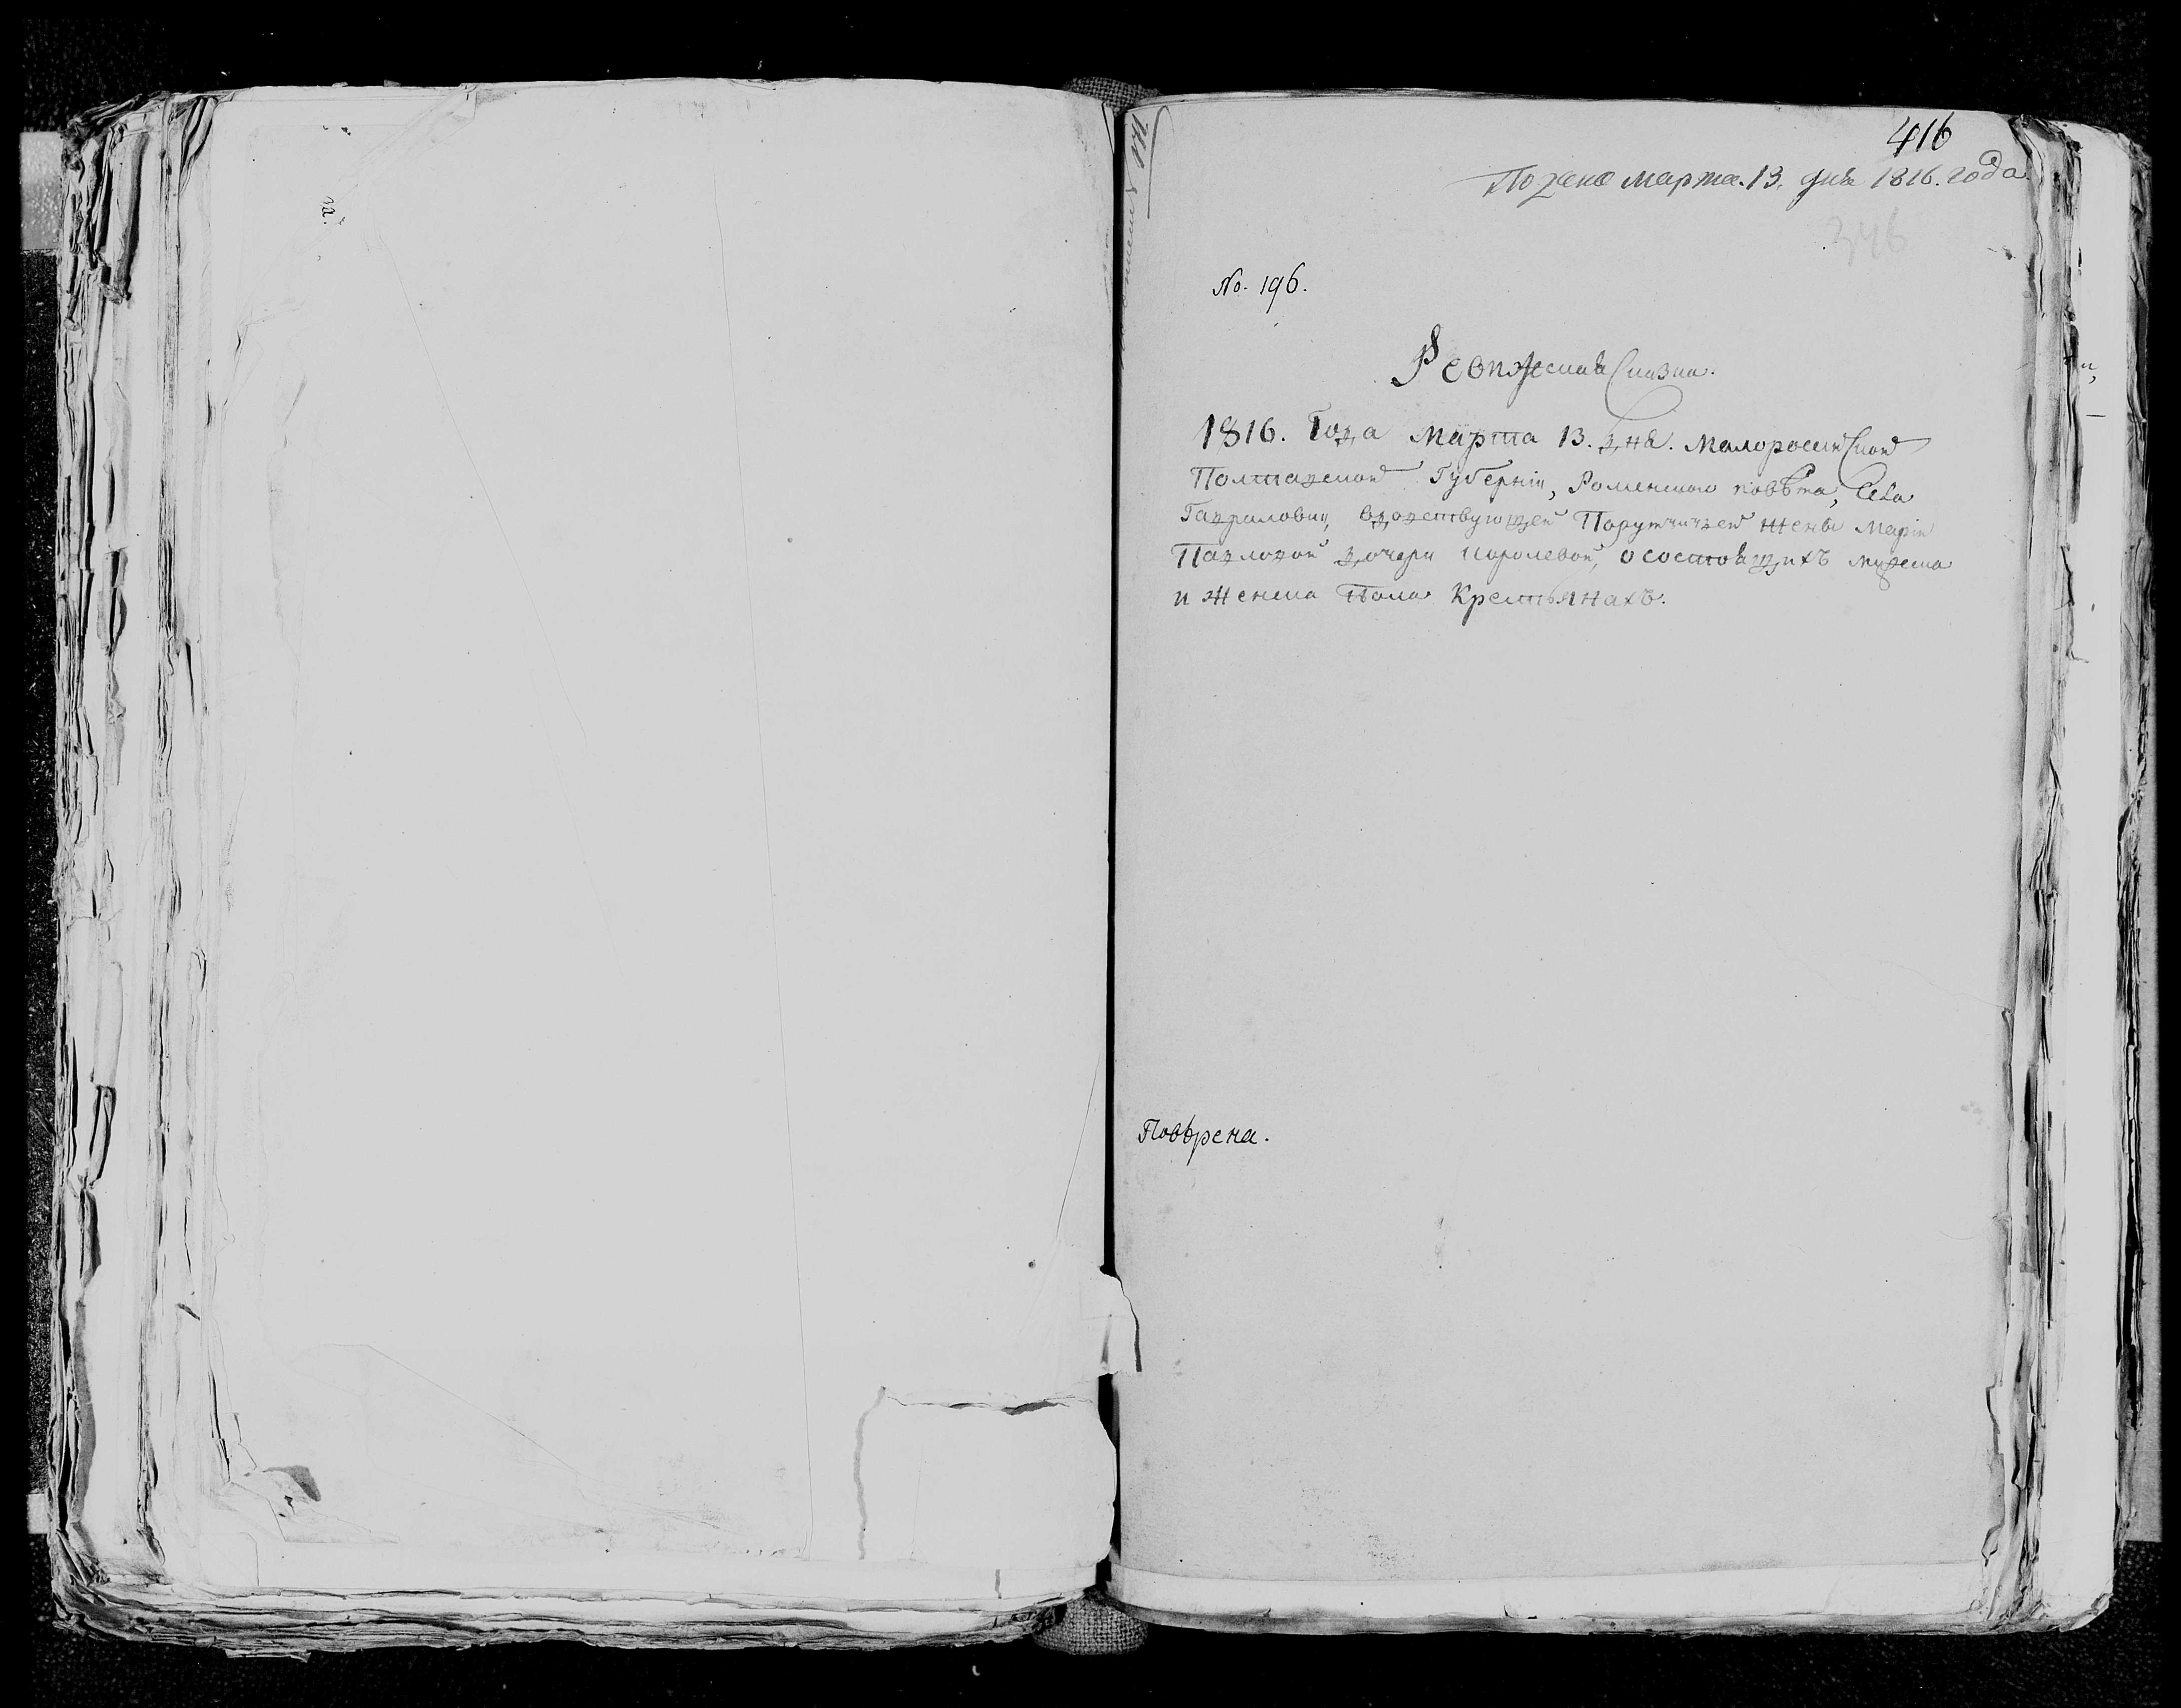 416
Подана Марта. 13. дня 1816. года.
346
No. 196.
Ревижская Сказка.
1816. Года Марта 13. дня. Малоросийской
Полтавской Губерніи, Роменского повѣта, Села
Гавриловки, вдовствующей Порутчичей жены Маріи
Павловой дочери Королевой, о состоящихъ мужеска
и женска пола Крестьянахъ.
Повѣрена.